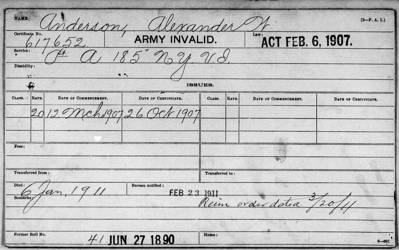 NAME: Anderson, Alexander W. (3-P. A. I.)
Certificate No. 617652 ARMY INVALID. Law: ACT FEB. 6, 1907.
Service: A 185 N.Y. V.I.
Disability:
ISSUES.
CLASS. RATE. DATE OF COMMENCEMENT. DATE OF CERTIFICATE. CLASS. RATE. DATE OF COMMENCEMENT. DATE OF CERTIFICATE.
20 12 Mch 1907 26 Oct 1907
Fee:
Transferred from: Transferred to:
Died: 6 Jan, 1911 Bureau notified: FEB 23 1911
Reim order dated 3/20/11
Former Roll No. 41 JUN 27 1890 Home: